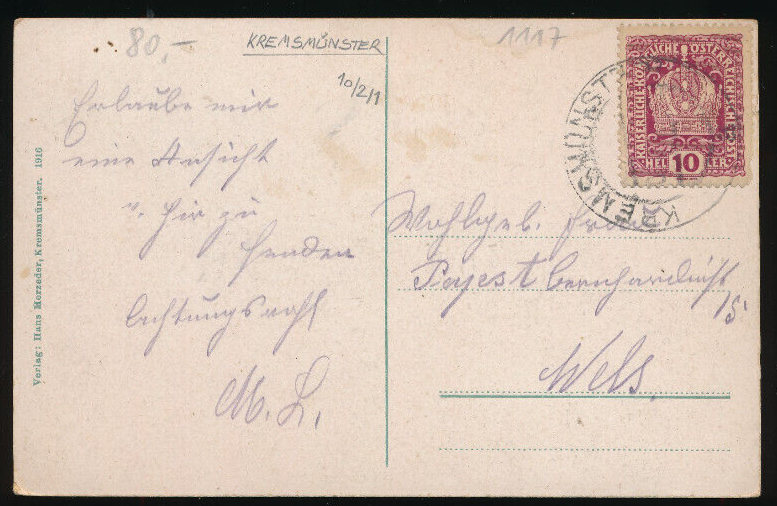 80,-
KREMSMÜNSTER
1117
10/2/1
Erlaube mir
eine Ansicht
v. hier zu
senden
Achtungsvoll
M. L.
Wohlgeb. Frau
Bernhardin
15
Wels.
KAISERLICHE KÖNIGLICHE ÖSTERREICHISCHE POST
HELLER 10 HELLER
KREMSMÜNSTER
Verlag: Hans Merzeder, Kremsmünster. 1916